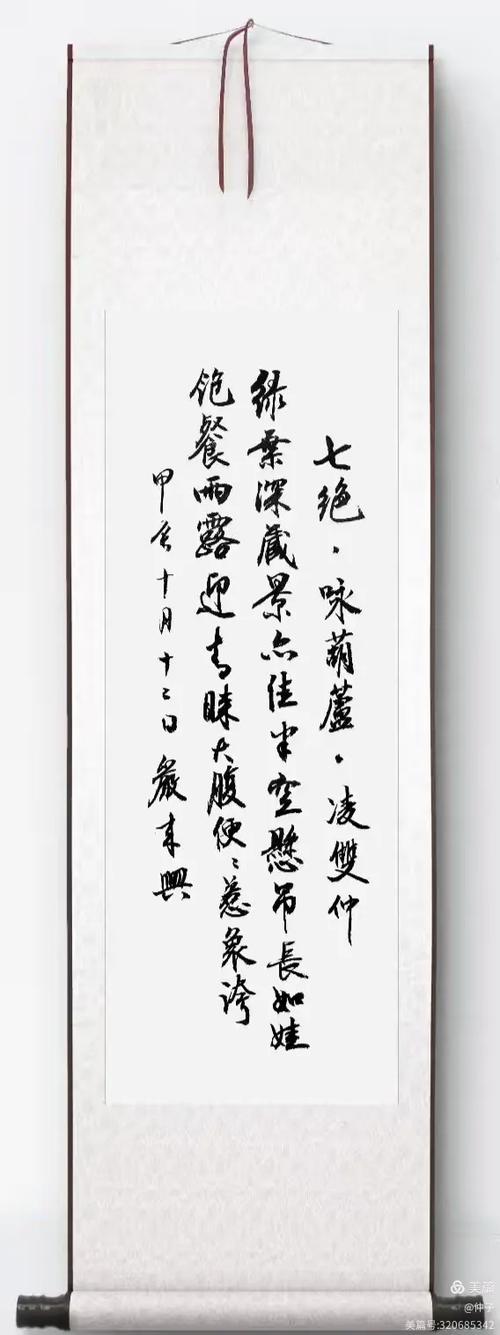 七绝·咏葫蘆·凌雙仲
绿葉深藏景亦佳半空懸吊長如娃
飽餐雨露迎青睐大腹便々惹衆誇
甲辰十月十二日嚴来興
美篇
@仲子
美篇号:320685342